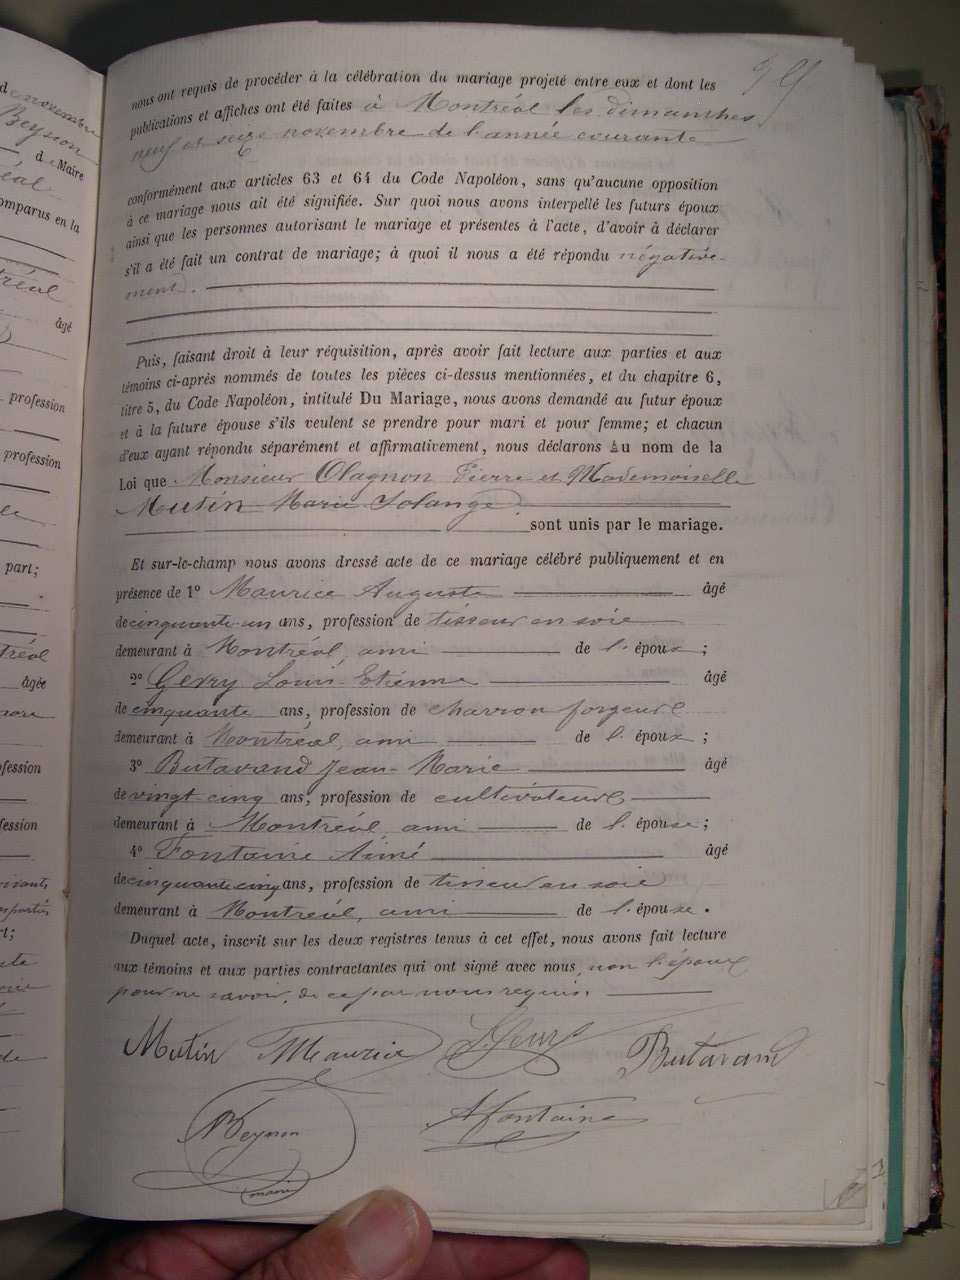 nous ont requis de procéder à la célébration du mariage projeté entre eux et dont les
publications et affiches ont été faites à Montréal les dimanches
neuf et seize novembre de l'année courante
conformément aux articles 63 et 64 du Code Napoléon, sans qu'aucune opposition
à ce mariage nous ait été signifiée. Sur quoi nous avons interpellé les futurs époux
ainsi que les personnes autorisant le mariage et présentes à l'acte, d'avoir à déclarer
s'il a été fait un contrat de mariage; à quoi il nous a été répondu négative-
ment.
Puis, faisant droit à leur réquisition, après avoir fait lecture aux parties et aux
témoins ci-après nommés de toutes les pièces ci-dessus mentionnées, et du chapitre 6,
titre 5, du Code Napoléon, intitulé Du Mariage, nous avons demandé au futur époux
et à la future épouse s'ils veulent se prendre pour mari et pour femme; et chacun
d'eux ayant répondu séparément et affirmativement, nous déclarons au nom de la
Loi que Monsieur Olagnon Pierre et Mademoiselle
Mutin Marie Solange
sont unis par le mariage.
Et sur-le-champ nous avons dressé acte de ce mariage célébré publiquement et en
présence de 1° Maurice Auguste âgé
de cinquante-un ans, profession de tisseur en soie
demeurant à Montréal, ami de l'époux;
2° Gerry Louis Etienne âgé
de cinquante ans, profession de charron forgeur
demeurant à Montréal, ami de l'époux;
3° Butavand Jean-Marie âgé
de vingt cinq ans, profession de cultivateur
demeurant à Montréal, ami de l'épouse;
4° Fontaine Aimé âgé
de cinquante cinq ans, profession de tisseur en soie
demeurant à Montréal, ami de l'épouse.
Duquel acte, inscrit sur les deux registres tenus à cet effet, nous avons fait lecture
aux témoins et aux parties contractantes qui ont signé avec nous, non l'époux
pour ne savoir, de ce par nous requis.
Mutin Maurice Butavand
Beynon A Fontaine
maire
d novembre
Beyson
, d Maire
éal
omparus en la
tréal
âgé
profession
profession
part;
tréal
âgée
ofession
fession
rt;